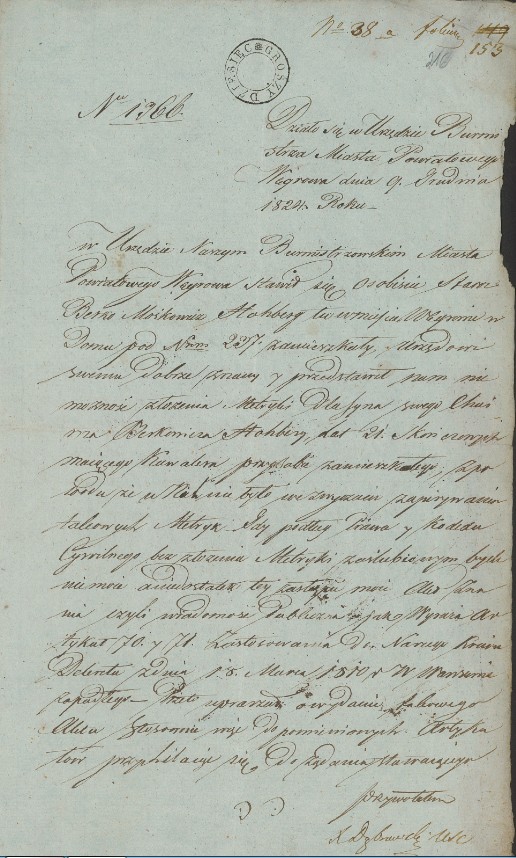 No 38 a folium 119
216 153
DZIESIĘĆ GROSZY
Nro 1366.
Działo się w Urzędzie Burmi
strza Miasta Powiatowego
Węgrowa dnia 9. Grudnia
1824. Roku
w Urzędzie Naszym Burmistrzowskim Miasta
Powiatowego Węgrowa stawił się osobiście Staroz
Berko Moskowicz Hohberg tu w mieście Węgrowie w
Domu pod Nrem 237. zamieszkały, Urzędowi
swemu dobrze znany y przedstawił nam nie
możność złożenia Metryki dla syna swego
Berkowicza Hohberg lat 21. skończonych
maiącego Kawalera przy zamieszkałego, z po
wodu że u nie było we zwyczaiu zapisywania
takowych Metryk. Gdy podług Prawa y Kodexu
Cywilnego bez złożenia Metryki zaślubionym bydź
nie może a niedostatek tey zastąpić może Akt Zna
nia czyli wiadomości Publiczney jak wyraża Ar
tykuł 70. y 71. Zastosowania do Naszego Kraiu
Dekretu z dnia 1. Marca 1810 r w Warszawie
zapadłego. Przeto upraszał o wydanie takowego
Aktu stosownie wyż do pomienionych Artyku
łów przychilaiąc się do żądania stawaiącego
przywołałem
Dąbrowski